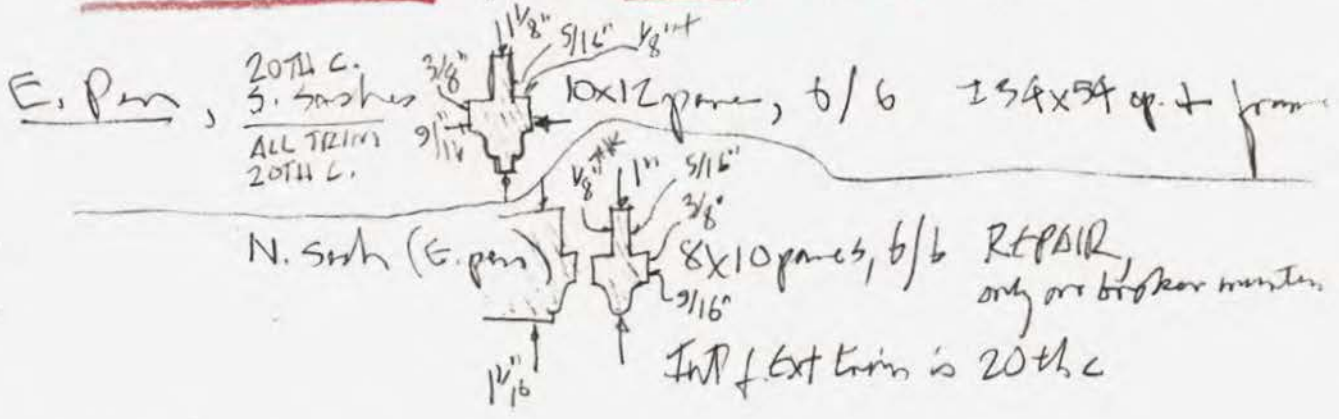 E. Pen, 20TH C. S. Sashes
ALL TRIM 20TH C.
1 1/8"
5/16"
1/8"+
3/8"
9/16"
10x12 pane, 6/6 ±34x54 op. + frame
N. Sash (E. pen)
1/8"
1"
5/16"
3/8"
9/16"
8x10 panes, 6/6 REPAIR,
only one broken muntin
Int & Ext trim is 20th c